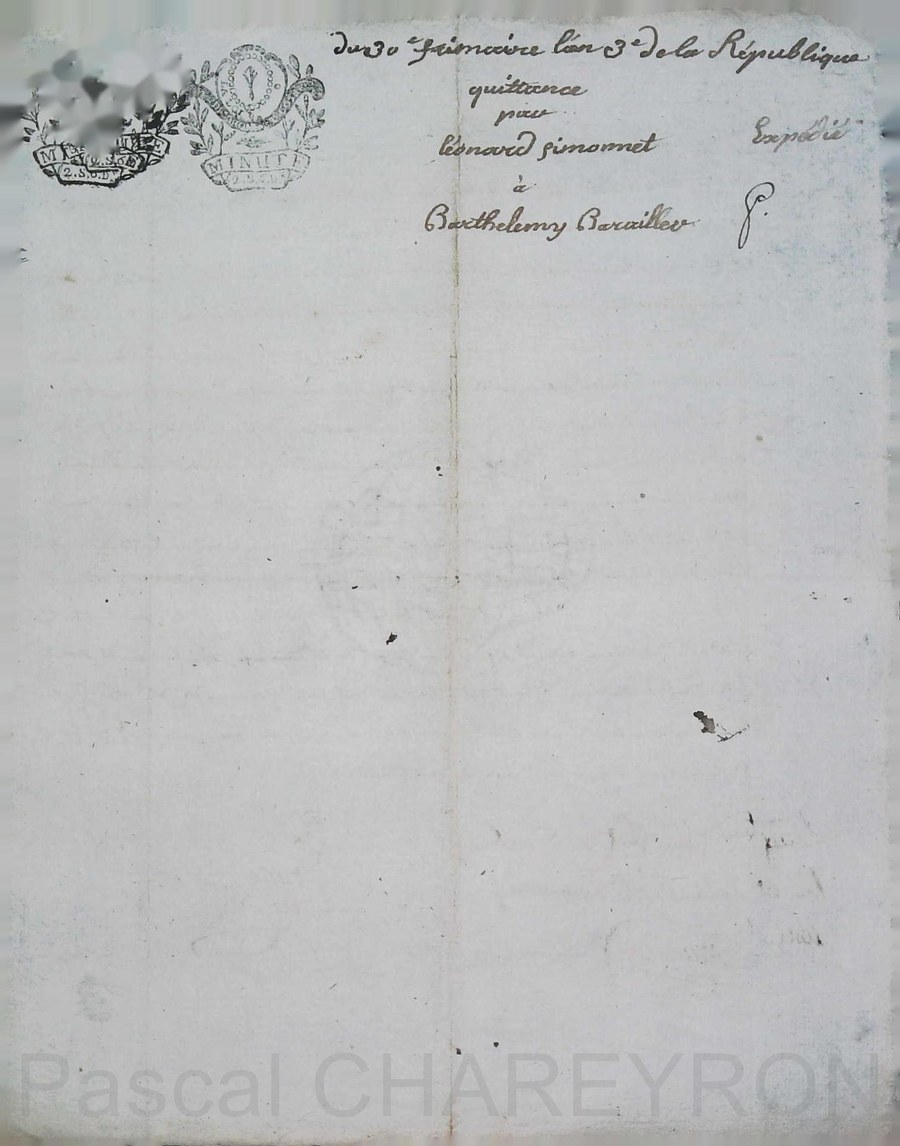 du 30e frimaire l'an 3e de la République
quittance
par
léonard simonnet
à
Barthelemy Barailler
Expédié
MINUTE
2.S.6.D.
MINUTE
2.S.6.D.
Pascal CHAREYRON